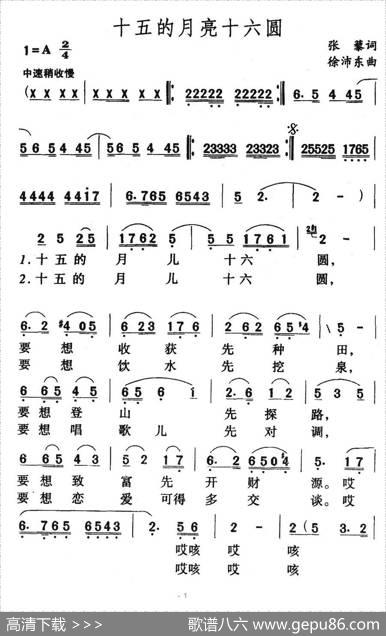 十五的月亮十六圆
1=A 2/4
张藜词
徐沛东曲
中速稍收慢
(X X X X X X X X 22222 22222 6. 5 4 45
56 45 45 56 45 45 23333 23333 23 23 25525 1765
4444 4417 6.765 6543 5 2. 2 - )
5 2 25 1762 5 5 51 1761 2 -
1.十五的月儿十六圆,
2.十五的月儿十六圆,
6. 2 #4 05 6 23 176 2 62 6 5#4 5 -
要想收获先种田,
要想饮水先挖泉,
6 65 45 65 6 1 2. 6 12 5 3 5
要想登山先探路,
要想唱歌儿先对调,
6 65 43 5 17 6. 2 650#4 5. 17
要想致富先开财源。哎
要想恋爱可得多交谈。哎
6. 765 6543 2. 56 2 2(5 3.2
哎咳哎咳
哎咳哎咳
- 1
高清下载 >>>
歌谱八六 www.gepu86.com